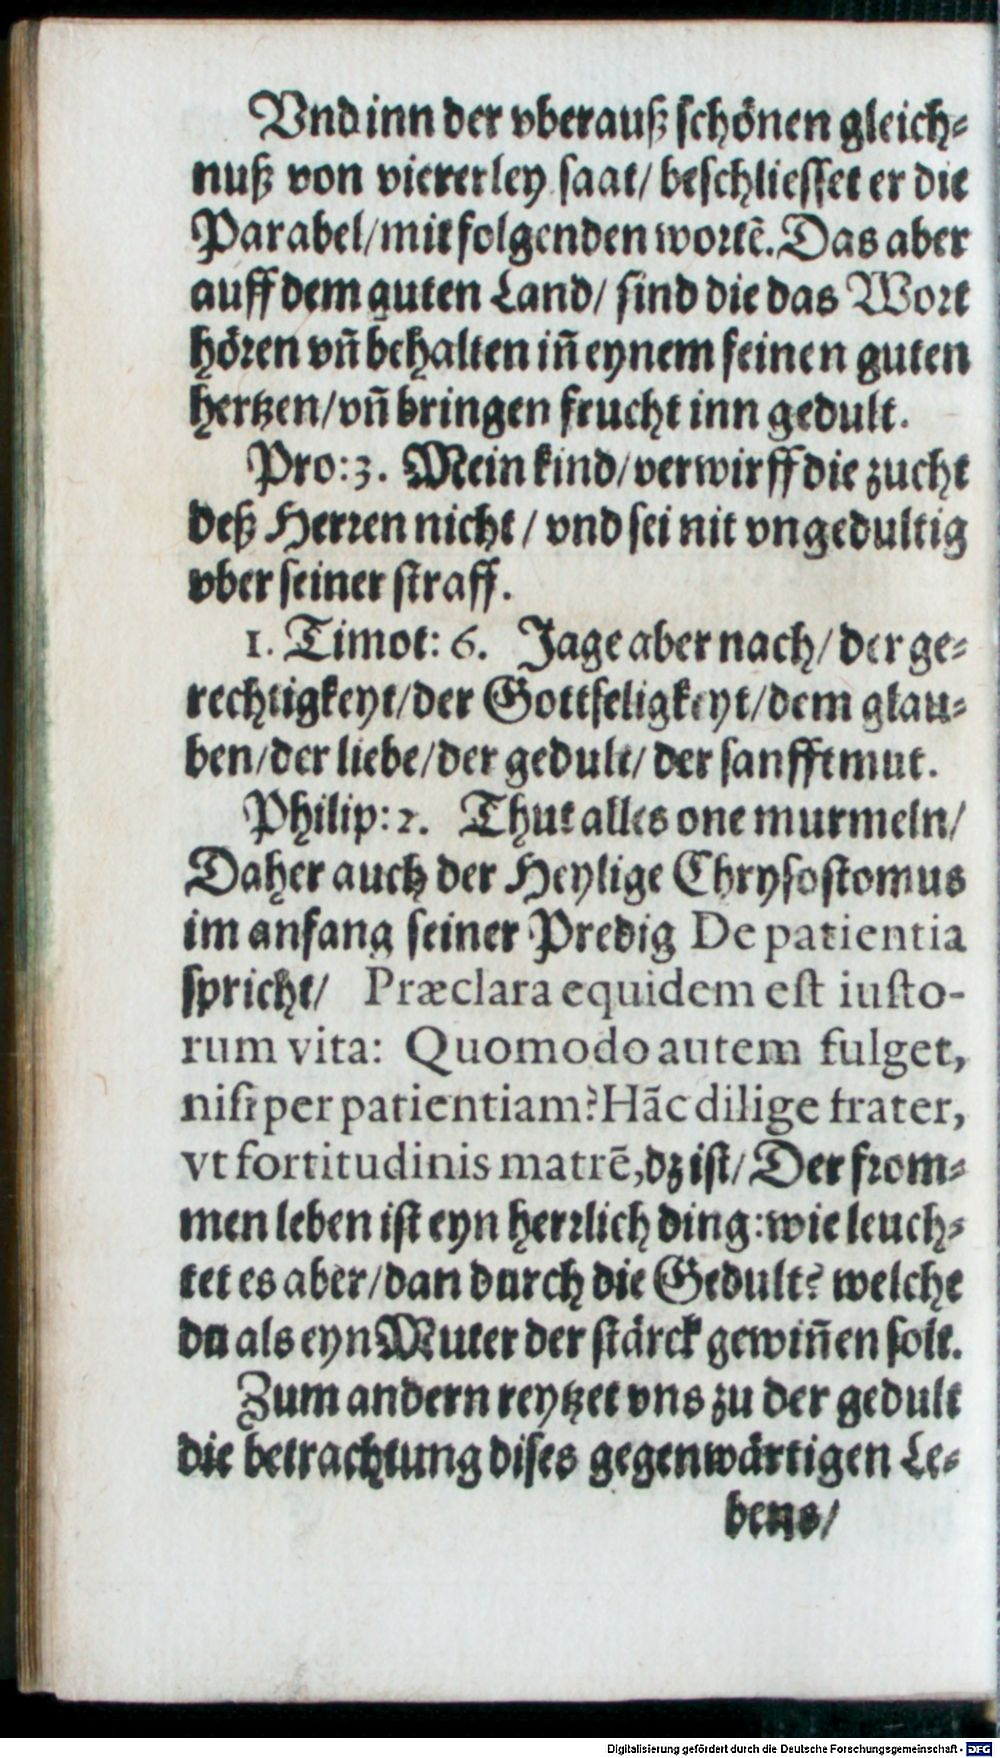 Vnd inn der vberauß schönen gleich-
nuß von viererley saat/ beschliesset er die
Parabel/ mit folgenden wortẽ. Das aber
auff dem guten Land/ sind die das Wort
hören vñ behalten iñ eynem feinen guten
hertzen/ vñ bringen frucht inn gedult.
Pro: 3. Mein kind/ verwirff die zucht
deß Herren nicht/ vnd sei nit vngedultig
vber seiner straff.
1. Timot: 6. Jage aber nach/ der ge-
rechtigkeyt/ der Gottseligkeyt/ dem glau-
ben/ der liebe/ der gedult/ der sanfftmut.
Philip: 2. Thut alles one murmeln/
Daher auch der Heylige Chrysostomus
im anfang seiner Predig De patientia
spricht/ Præclara equidem est iusto-
rum vita: Quomodo autem fulget,
nisi per patientiam? Hãc dilige frater,
vt fortitudinis matrẽ, dz ist/ Der from-
men leben ist eyn herrlich ding: wie leuch-
tet es aber/ dan durch die Gedult? welche
du als eyn Muter der stärck gewiñen solt.
Zum andern reytzet vns zu der gedult
die betrachtung dises gegenwärtigen Le-
bens/
Digitalisierung gefördert durch die Deutsche Forschungsgemeinschaft - DFG